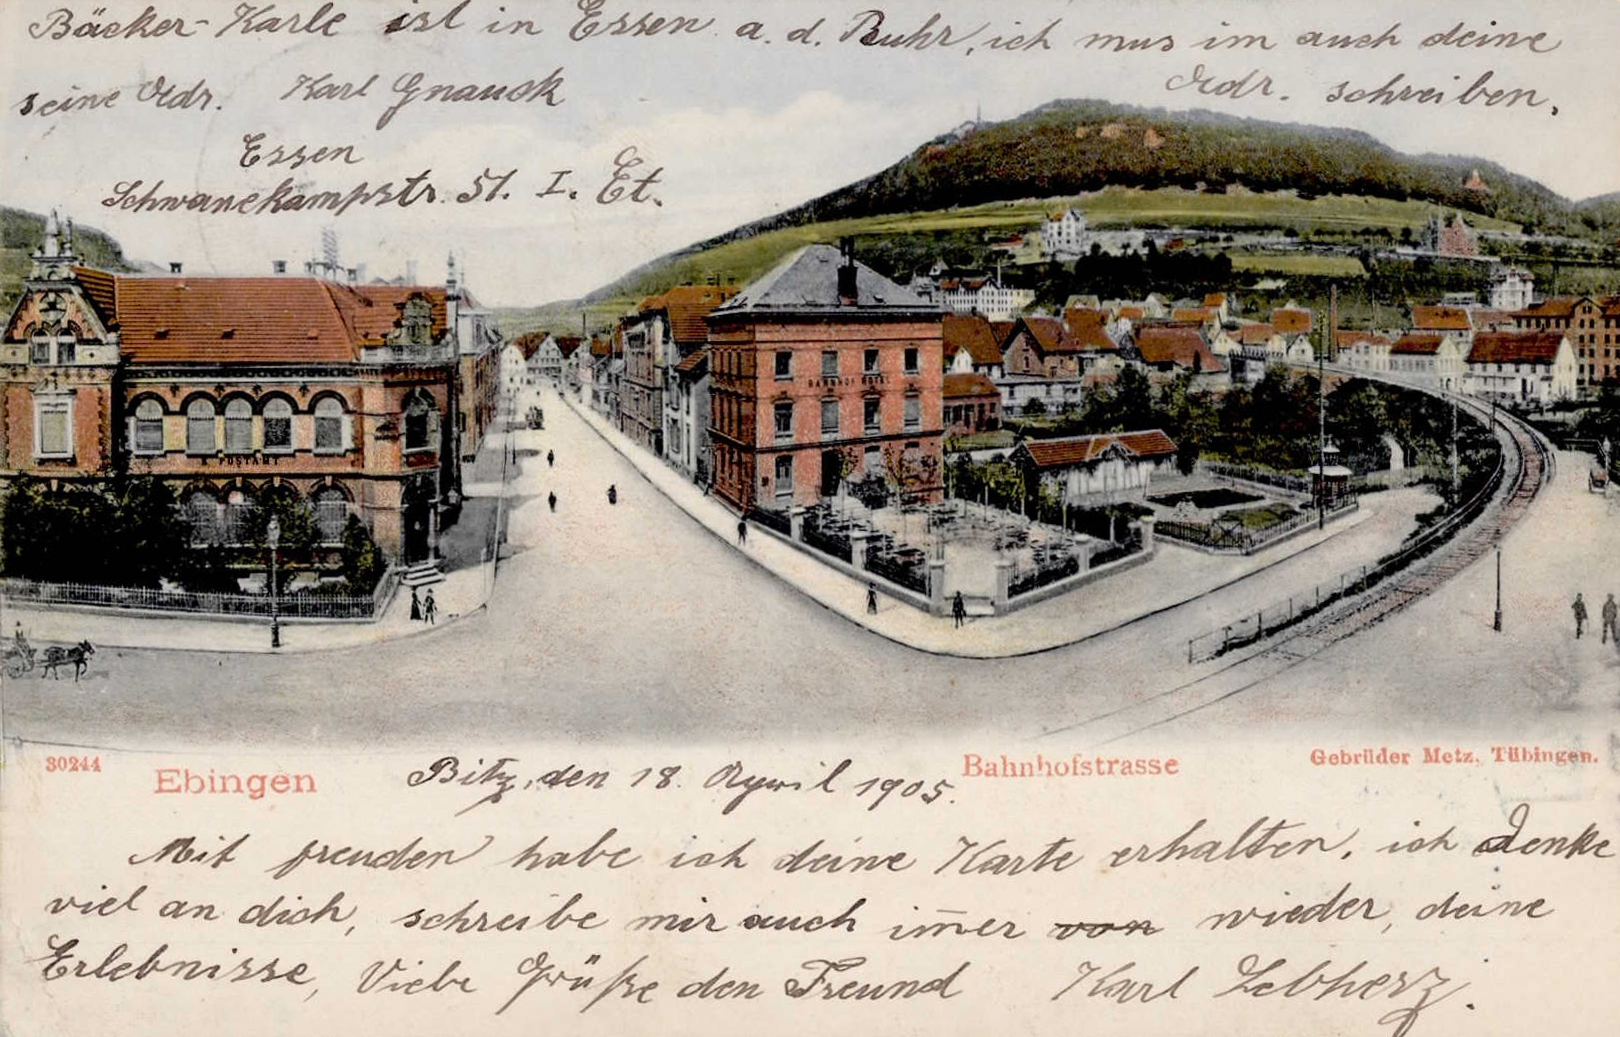 Bäcker-Karle ist in Essen a. d. Ruhr, ich mus im auch deine
Adr. schreiben,
seine Adr. Karl Gnauck
Essen
Schwanekampstr. 51. I. Et.
K. POSTAMT
BAHNHOF HOTEL
30244
Ebingen
Bitz, den 18. April 1905.
Bahnhofstrasse
Gebrüder Metz, Tübingen.
Mit freuden habe ich deine Karte erhalten, ich denke
viel an dich, schreibe mir auch im̄er von wieder, deine
Erlebnisse, Viele Grüße den Freund Karl Lebherz.